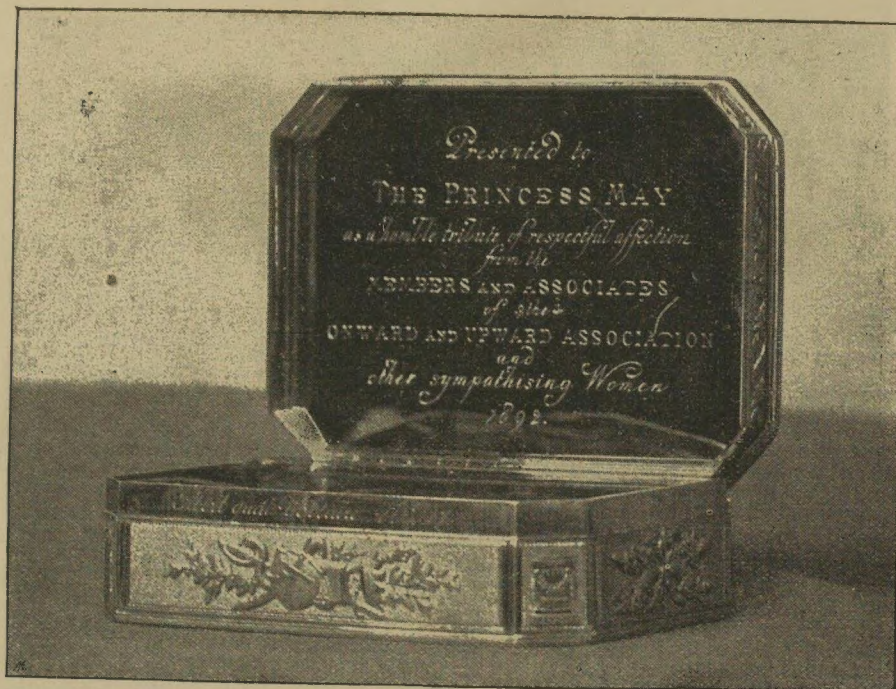 Presented to
THE PRINCESS MAY
as a humble tribute of respectful affection
from the
MEMBERS AND ASSOCIATES
of the
ONWARD AND UPWARD ASSOCIATION
and
other sympathising Women
1892.